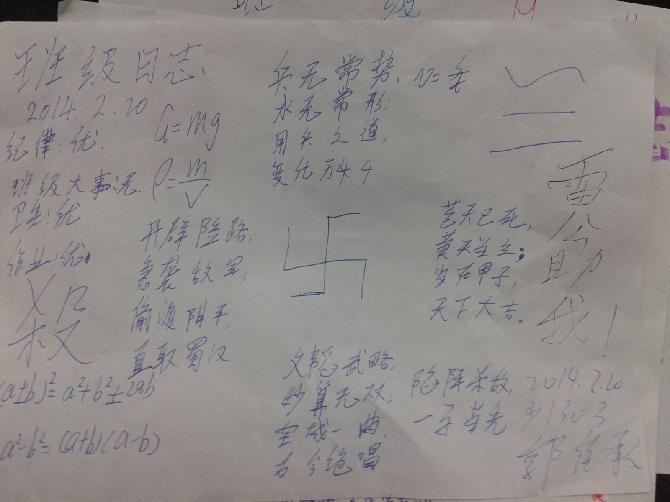 班级日志
2014.2.20
纪律:优.
班级大事:无.
卫生:优.
作业:优.
G=mg
ρ=m/V
开辟险路,
急袭敌军,
偷渡阴平,
直取蜀汉
(a±b)²=a²+b²±2ab
a²-b²=(a+b)(a-b)
兵无常势,
水无常形,
用兵之道,
变化万千
苍天已死,
黄天当立;
岁在甲子,
天下大吉。
我!
文韬武略,
妙算无双,
空城一曲,
古今绝唱
陷阵杀敌,
一字当先
2014.2.20